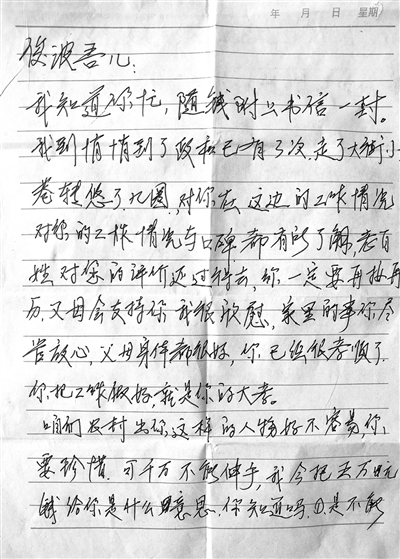 年 月 日 星期
俊波吾儿:
我知道你忙,随钱附上书信一封。
我到悄悄到了政和已有了次.走了大街小
巷转悠了几圈,对你在这边的工作情况
对你的工作情况与口碑都有所了解,老百
姓对你的评价还过得去,你一定要再接再
厉,父母会支持你,我很欣慰,家里的事你尽
管放心,父母身体都很好,你已经很孝顺了.
你把工作做好,就是你的大孝。
咱们农村出你这样的人物好不容易,你
要珍惜.可千万不能伸手,我今把 万 元
钱给你是什么 意思.你知道吗,①是不能